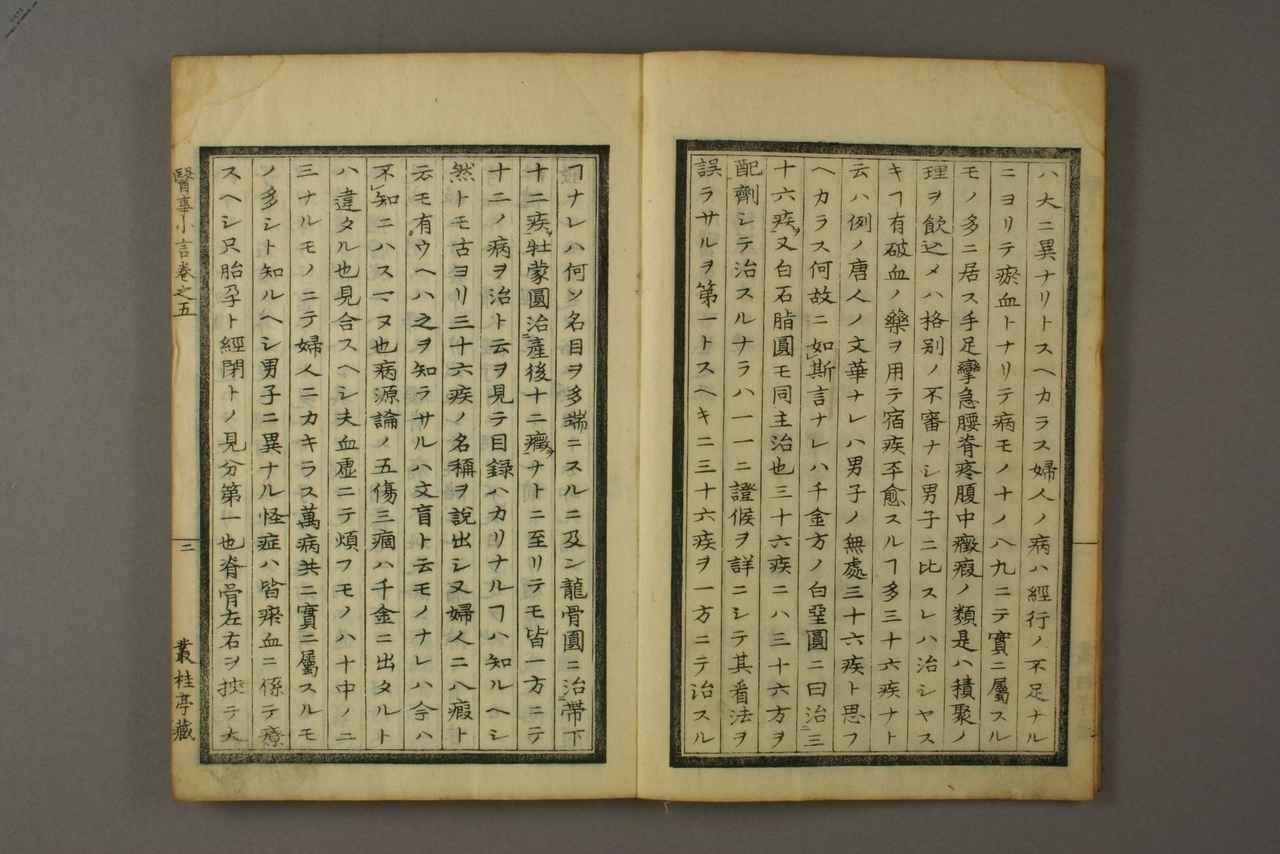 ハ大ニ異ナリトスヘカラス婦人ノ病ハ經行ノ不足ナル
ニヨリテ瘀血トナリテ病モノ十ノ八九ニテ實ニ屬スル
モノ多ニ居ス手足攣急腰脊疼腹中癥瘕ノ類是ハ積聚ノ
理ヲ飮込メハ格别ノ不審ナシ男子ニ比スレハ治シヤス
キヿ有破血ノ藥ヲ用テ宿疾平愈スルヿ多三十六疾ナト
云ハ例ノ唐人ノ文華ナレハ男子ノ無處三十六疾ト思フ
ヘカラス何故ニ如斯言ナレハ千金方ノ白堊圓ニ曰治三
十六疾又白石脂圓モ同主治也三十六疾ニハ三十六方ヲ
配劑シテ治スルナラハ一一ニ證候ヲ詳ニシテ其看法ヲ
誤ラサルヲ第一トスヘキニ三十六疾ヲ一方ニテ治スル
ヿナレハ何ソ名目ヲ多端ニスルニ及ン龍骨圓ニ治帶下
十二疾牡蒙圓治產後十二癥ナトニ至リテモ皆一方ニテ
十二ノ病ヲ治ト云ヲ見テ目録ハカリナルヿハ知ルヘシ
然トモ古ヨリ三十六疾ノ名稱ヲ說出シ又婦人ニ八瘕ト
云モ有ウヘハ之ヲ知ラサルハ文盲ト云モノナレハ今ハ
不知ニハスマヌ也病源論ノ五傷三痼ハ千金ニ出タルト
ハ違タル也見合スヘシ夫血虛ニテ煩フモノハ十中ノ二
三ナルモノニテ婦人ニカキラス萬病共ニ實ニ屬スルモ
ノ多シト知ルヘシ男子ニ異ナル怪症ハ皆瘀血ニ係テ療
スヘシ只胎孕ト經閉トノ見分第一也脊骨左右ヲ挾テ大
醫事小言卷之五
三
叢桂亭藏